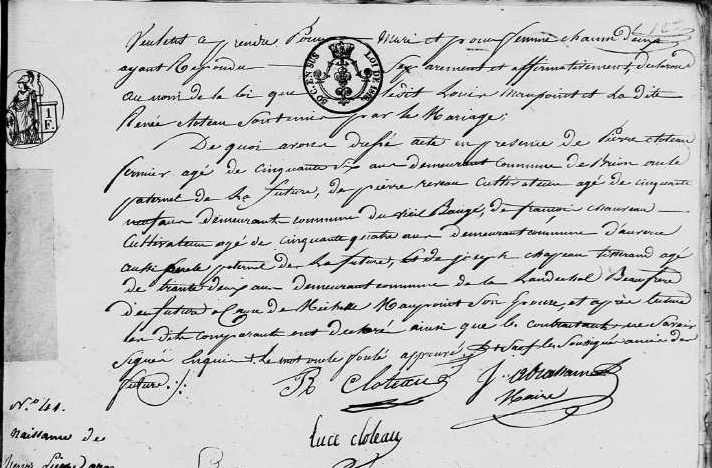 Veulent prendre Pour Mari et pour femme chacun d'eux
ayant Repondu séparement et affirmativement, declarons
au nom de la loi que ledit Louis Maupoint et La dite
Renée cloteau sont unis par le Mariage;
De quoi avons dressé acte en presence de Pierre cloteau
fermier agé de Cinquante six ans demeurant Commune de Brion oncle
paternel de La future, de pierre Cultivateur agé de cinquante
neuf ans demeurant commune du vieil Baugé, de françois chauveau
Cultivateur agé de Cinquante quatre ans demeurant commune
aussi oncle paternel de La future, et de joseph chapeau tisserand agé
de trente deux ans demeurant commune de la Lande chal Beaufrere
du futur a Cause de Michelle Maupoint Son Epouse, et après lecture
les dits comparants ont declaré ainsi que les contractants ne Savoir
Signer Le mot oncle approuvé, Sauf les Soussignés
future
R Cloteau
Maire
luce cloteau
N.° 41.
Naissance de
1 F.